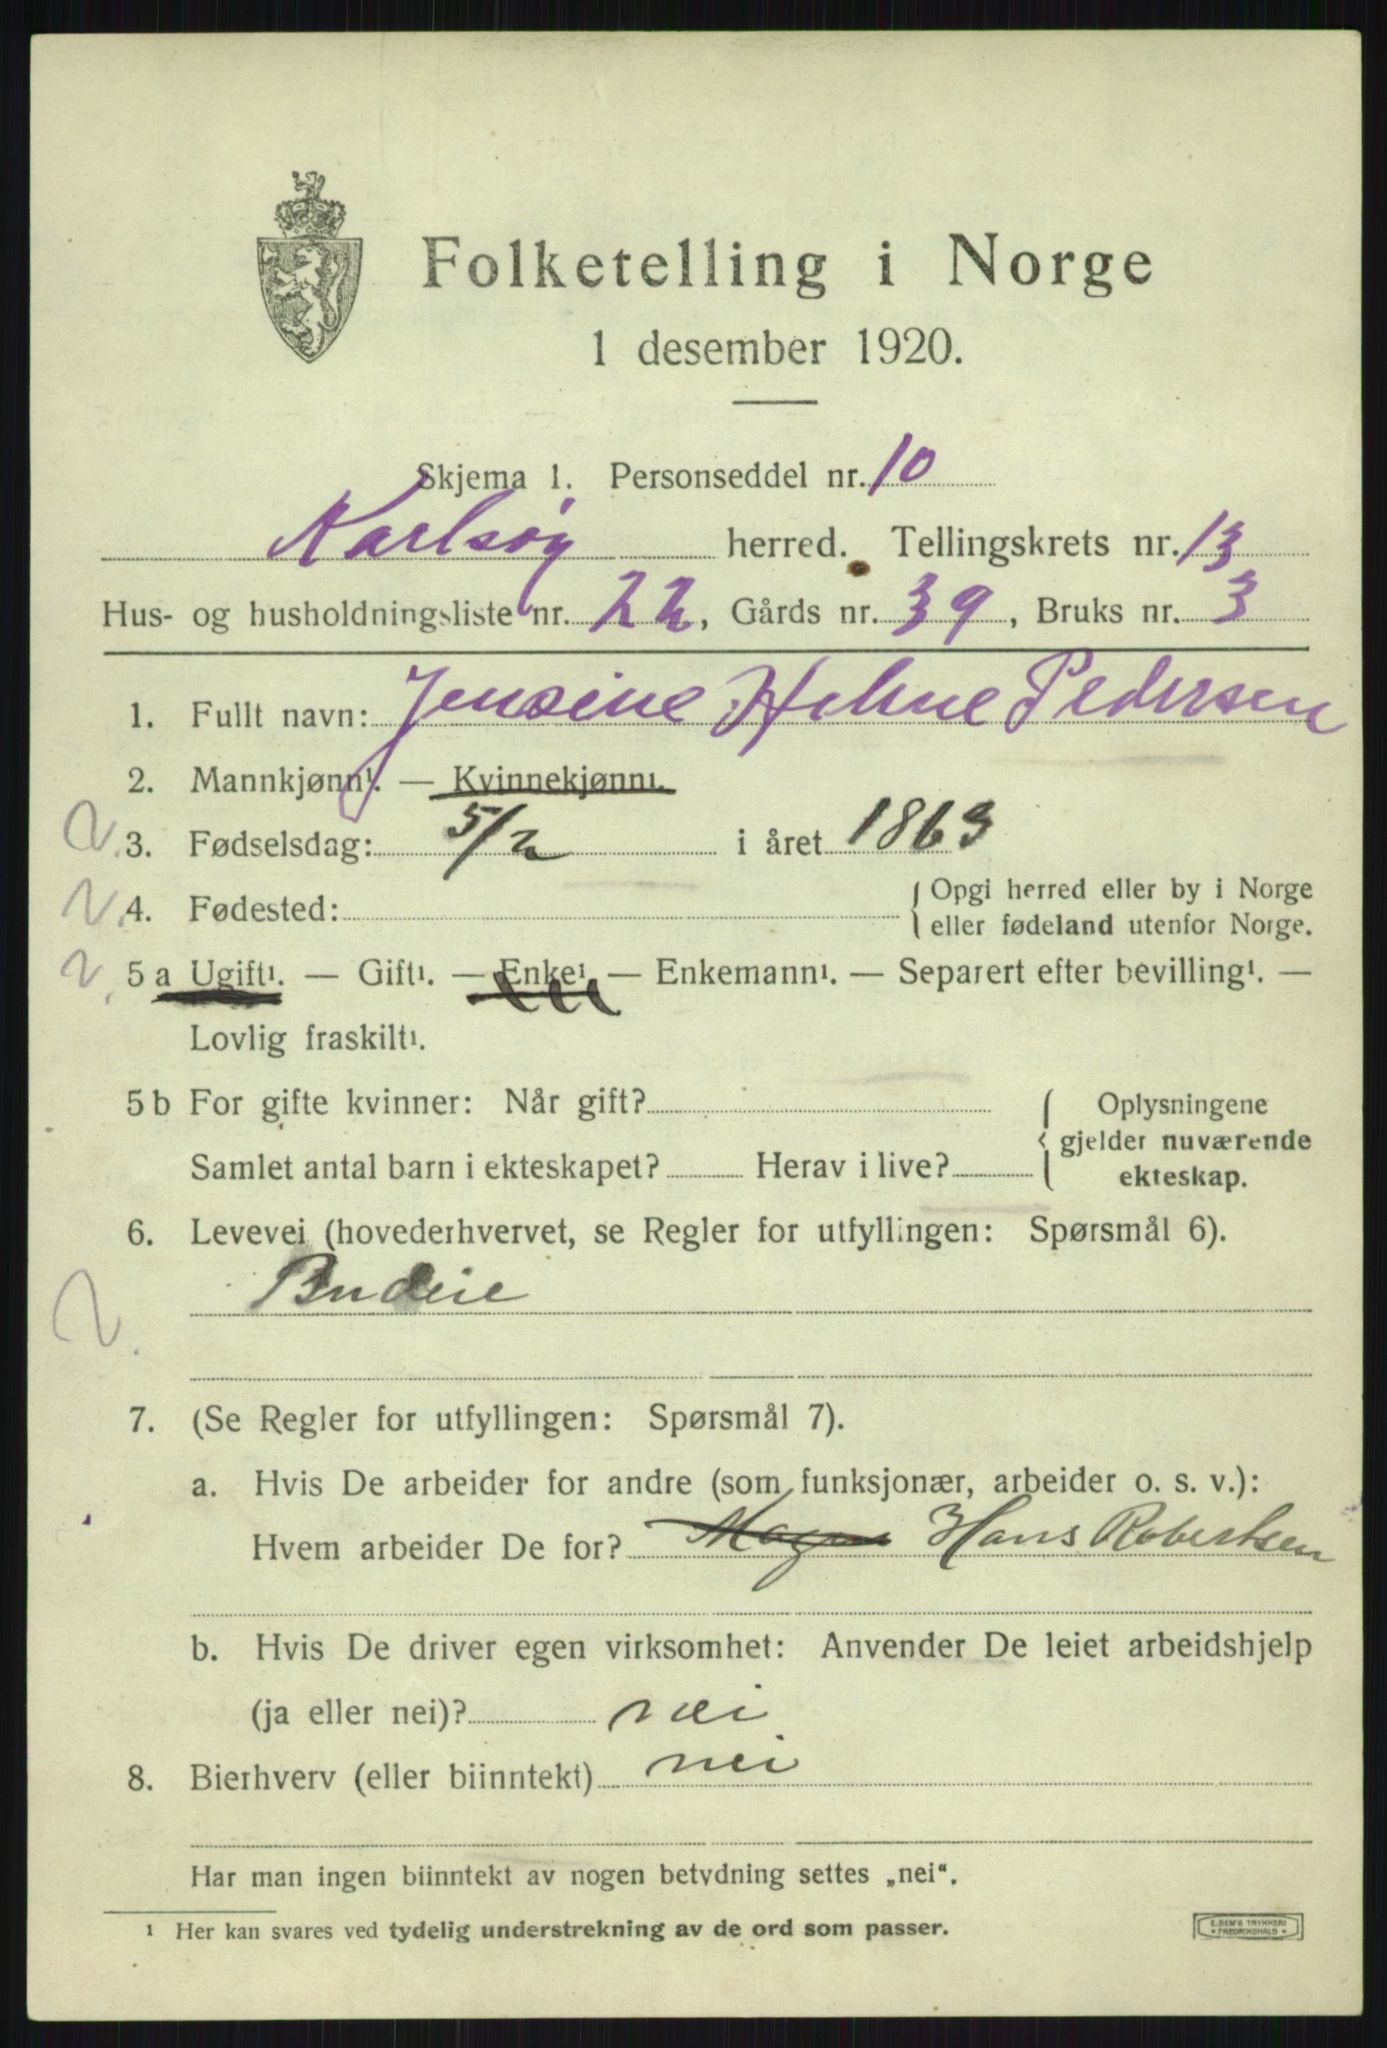 Folketelling i Norge
1 desember 1920.
Skjema 1. Personseddel nr. 10
Karlsøy herred. Tellingskrets nr. 13
Hus- og husholdningsliste nr. 22, Gårds nr. 39, Bruks nr. 3
1. Fullt navn: Jensine Helene Pedersen
2. Mannkjønn¹. — Kvinnekjønn¹.
2. 3. Fødselsdag: 5/2 i året 1863
2. 4. Fødested: { Opgi herred eller by i Norge
eller fødeland utenfor Norge.
2. 5 a Ugift¹. — Gift¹. — Enke¹ — Enkemann¹. — Separert efter bevilling¹. —
Lovlig fraskilt¹.
5 b For gifte kvinner: Når gift? { Oplysningene
gjelder nuværende
Samlet antal barn i ekteskapet? Herav i live? ekteskap.
6. Levevei (hovederhvervet, se Regler for utfyllingen: Spørsmål 6).
2. Budeie
7. (Se Regler for utfyllingen: Spørsmål 7).
a. Hvis De arbeider for andre (som funksjonær, arbeider o. s. v.):
Hvem arbeider De for? Hans Robertsen
b. Hvis De driver egen virksomhet: Anvender De leiet arbeidshjelp
(ja eller nei)? nei
8. Bierhverv (eller biinntekt) nei
Har man ingen biinntekt av nogen betydning settes „nei“.
¹ Her kan svares ved tydelig understrekning av de ord som passer.
E. SEM'S TRYKKERI
• FREDRIKSHALD •